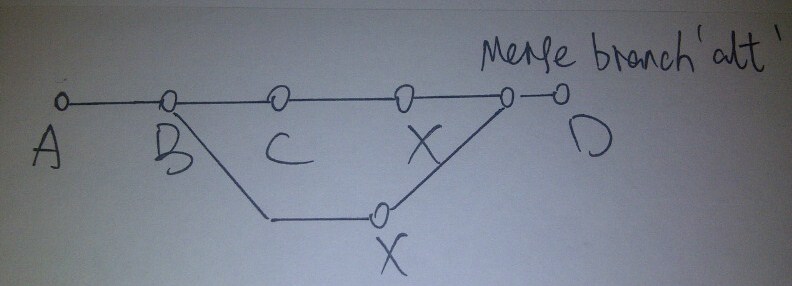 Merge branch 'alt'
A B C X D
X